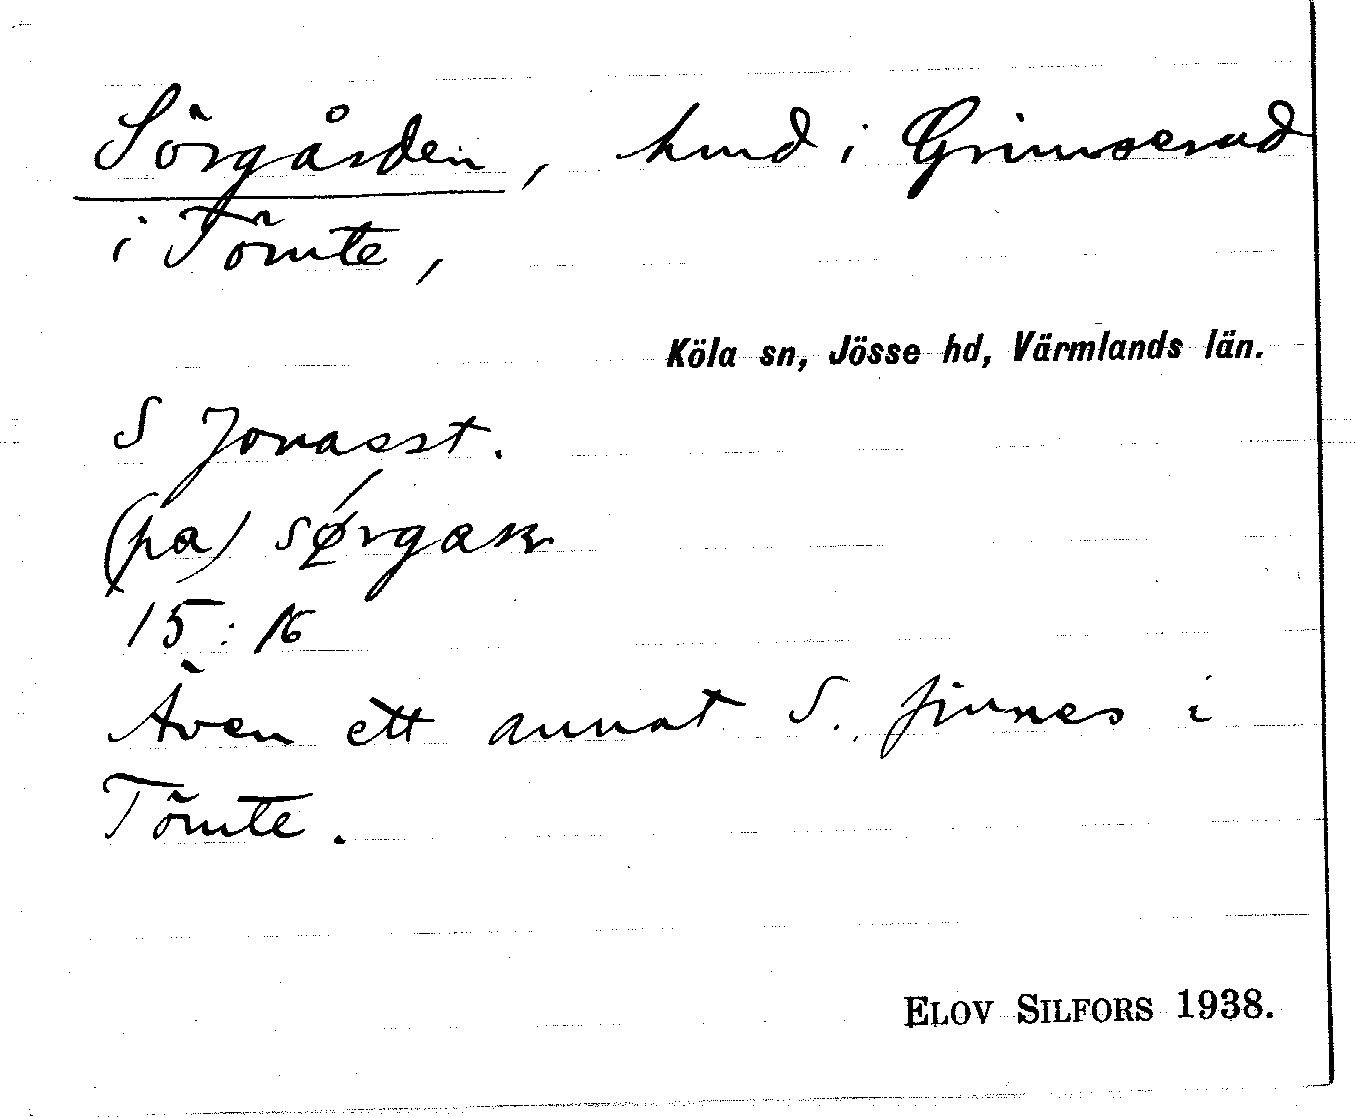 Sörgården, hmd i Grimserud
i Tömte,
Köla sn, Jösse hd, Värmlands län.
S Jonasst.
(pa) sørgaṣn
15:16
Även ett annat S. finnes i
Tömte.
ELOV SILFORS 1938.